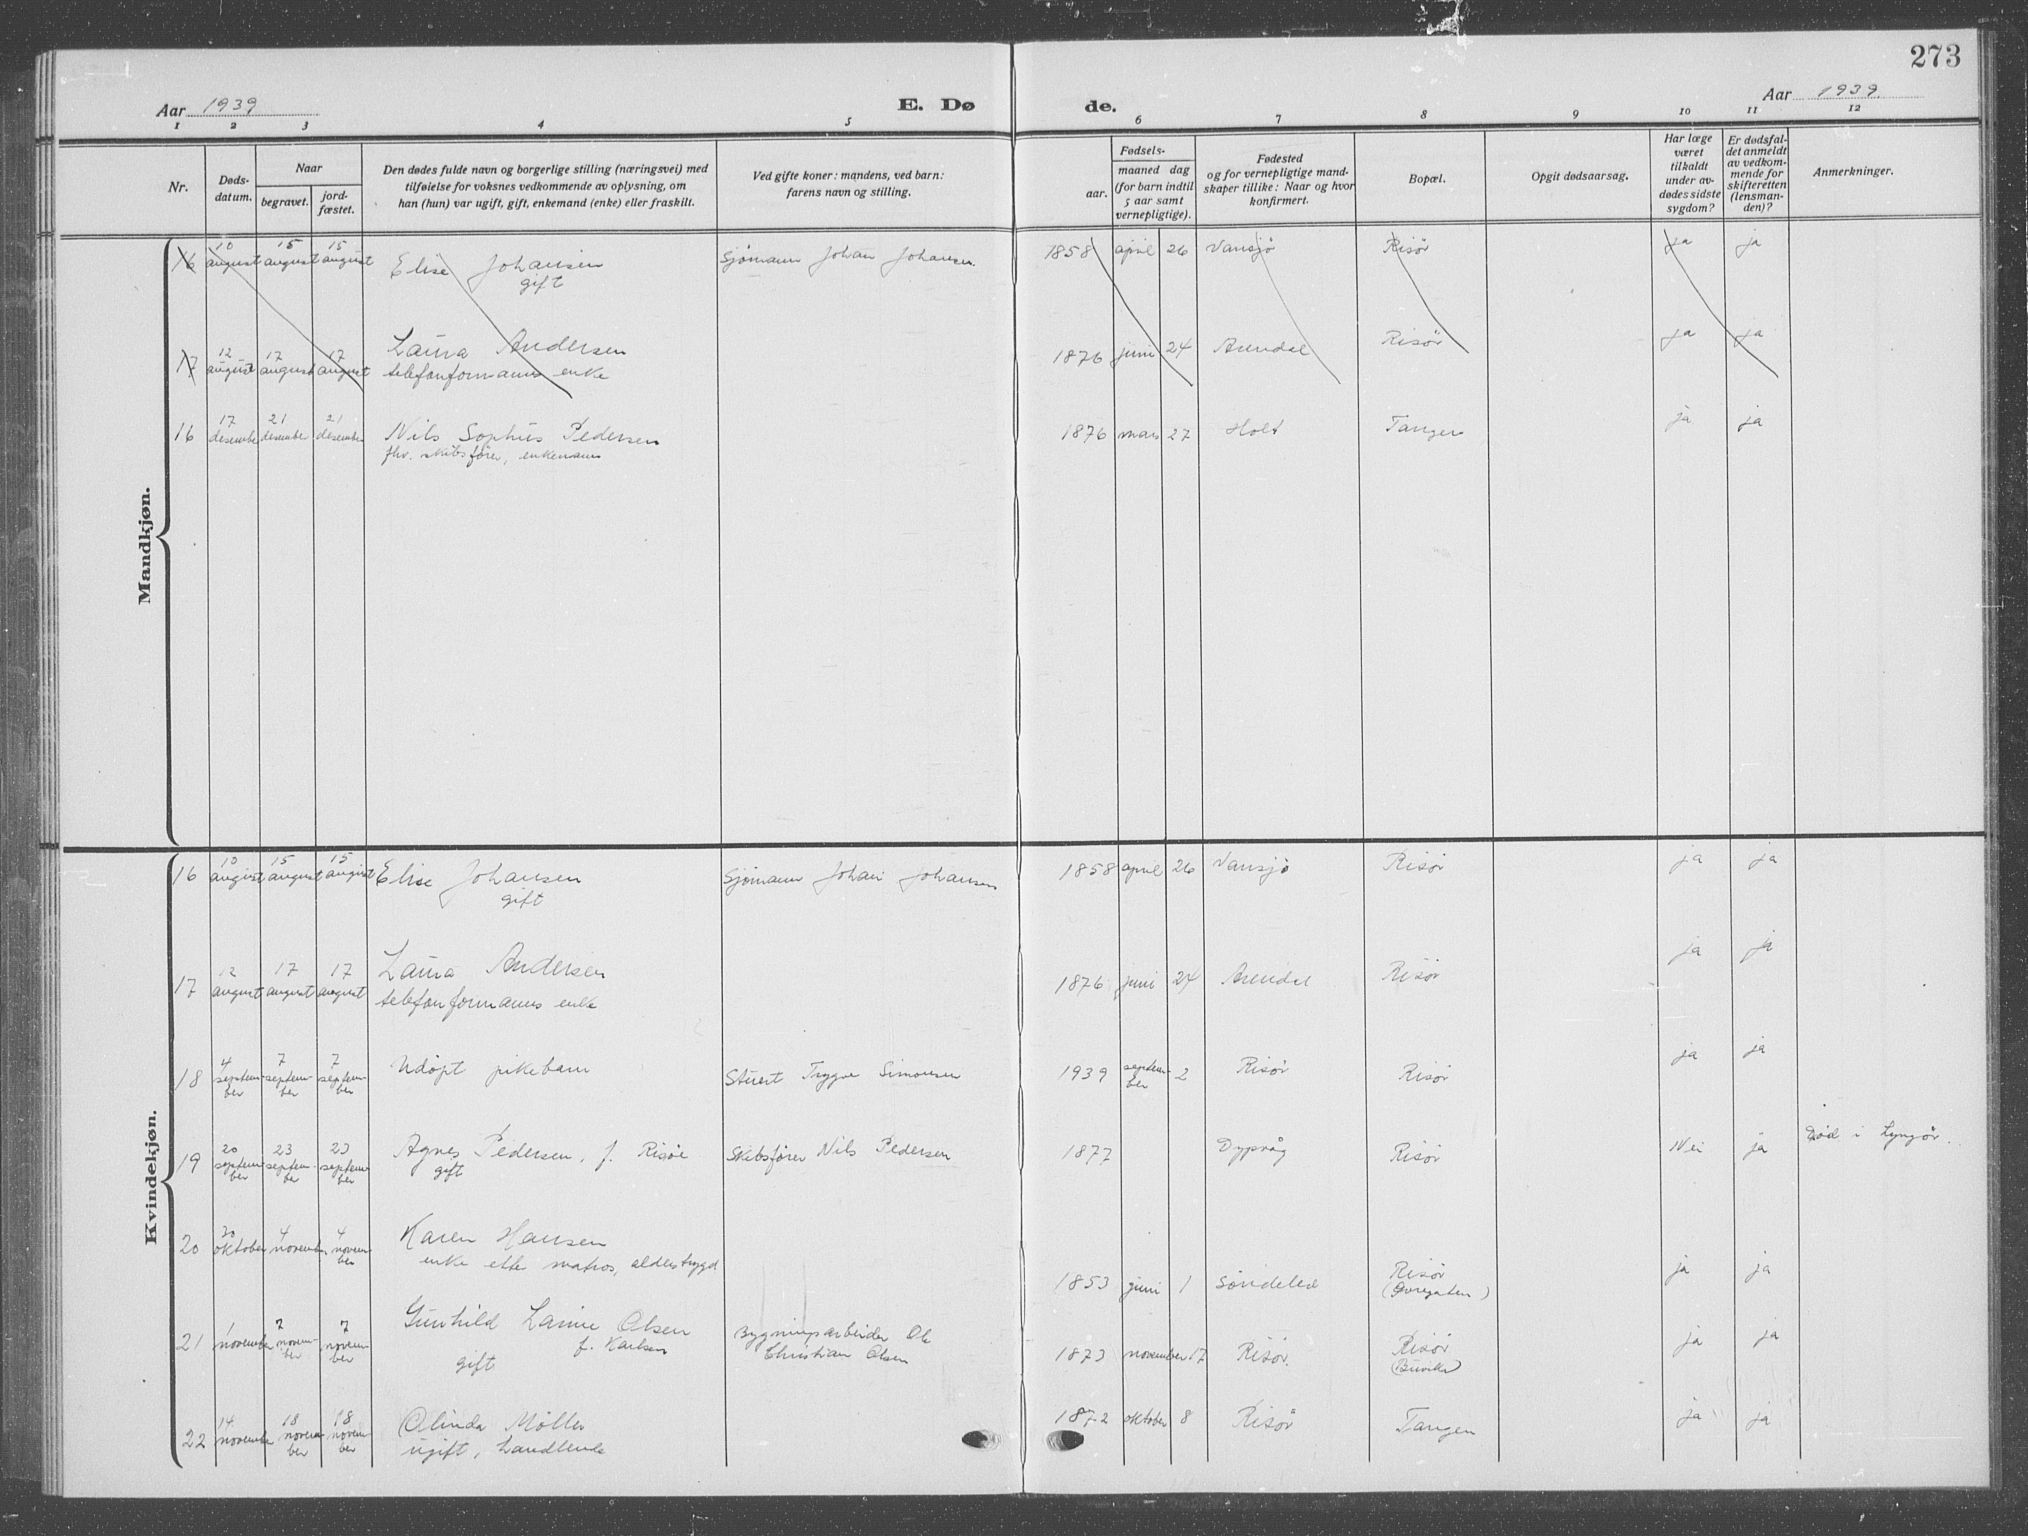 273
Aar 1939 E. Dø de. Aar 1939.
1 2 3 4 5 6 7 8 9 10 11 12
Nr.
Døds-
datum.
Naar
begravet.
jord-
fæstet.
Den dødes fulde navn og borgerlige stilling (næringsvei) med
tilføielse for voksnes vedkommende av oplysning, om
han (hun) var ugift, gift, enkemand (enke) eller fraskilt.
Ved gifte koner: mandens, ved barn:
farens navn og stilling.
Fødsels-
aar.
maaned dag
(for barn indtil
5 aar samt
vernepligtige).
Fødested
og for vernepligtige mand-
skaper tillike: Naar og hvor
konfirmert.
Bopæl.
Opgit dødsaarsag.
Har læge
været
tilkaldt
under av-
dødes sidste
sygdom?
Er dødsfal-
det anmeldt
av vedkom-
mende for
skifteretten
(lensman-
den)?
Anmerkninger.
Mandkjøn.
10 15 15
16 august august august Elise Johansen Sjømann Johan Johansen. 1858 april 26 Vansjø Risør ja ja
gift
12 17 17
17 august august august Laura Andersen 1876 juni 24 Arendal Risør ja ja
telefonformanns enke
17 21 21
16 desember desember desember Nils Sophus Pedersen 1876 mars 27 Holt Tangen ja ja
fhv. skibsfører, enkemann
Kvindekjøn.
10 15 15
16 august august august Elise Johansen Sjømann Johan Johansen 1858 april 26 Vansjø Risør ja ja
gift
12 17 17
17 august august august Laura Andersen 1876 juni 24 Arendal Risør ja ja
telefonformanns enke
4 7 7
18 septem- septem- septem- Udøpt pikebarn Stuert Trygve Simonsen 1939 septem- 2 Risør Risør ja ja
ber ber ber ber
20 23 23
19 septem- septem- septem- Agnes Pedersen, f. Risøe Skibsfører Nils Pedersen 1877 Dypvåg Risør Nei ja Død i Lyngør.
ber ber ber gift
20 4 4
20 oktober november novem- Karen Hansen 1853 juni 1 Søndeled Risør ja ja
ber enke etter matros, alderstrygd (Øvregaten)
1 7 7
21 november novem- novem- Gunhild Lanine Olsen Bygningsarbeider Ole 1873 november 17 Risør. Risør ja ja
ber ber f. Karlsen Christian Olsen (Buvika)
gift
14 18 18
22 november novem- novem- Olinda Møller 1872 oktober 8 Risør Tangen ja ja
ber ber ugift, handlende